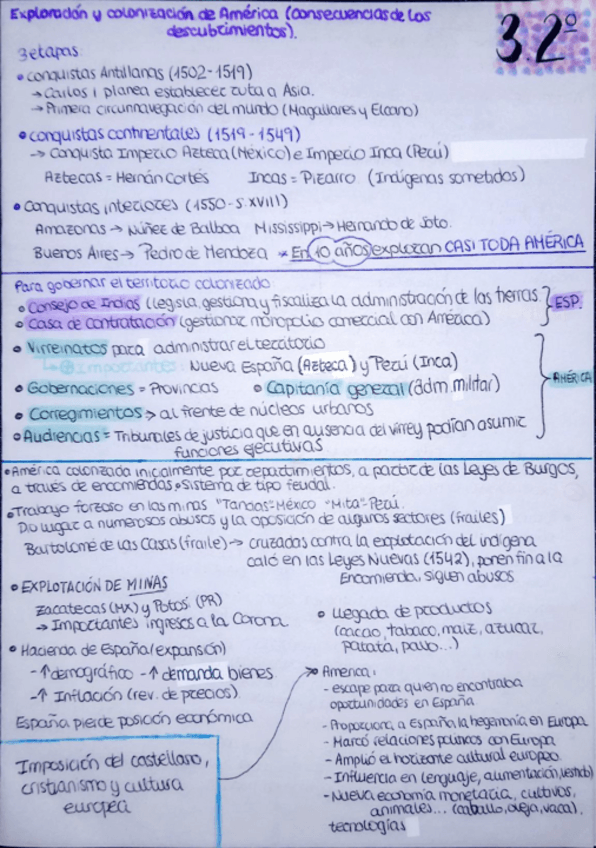 Exploración y colonización de América (consecuencias de los
descubrimientos).
3.2º
3 etapas
• conquistas Antillanas (1502-1519)
→ Carlos I planea establecer ruta a Asia.
→ Primera circunnavegación del mundo (Magallanes y Elcano)
• conquistas continentales (1519-1549)
→ Conquista Imperio Azteca (México) e Imperio Inca (Perú)
Aztecas = Hernán Cortés Incas = Pizarro (Indígenas sometidos)
• conquistas interiores (1550-s.XVIII)
Amazonas → Núñez de Balboa Mississippi → Hernando de Soto.
Buenos Aires → Pedro de Mendoza * En 10 años exploran CASI TODA AMÉRICA
Para gobernar el territorio colonizado:
• Consejo de Indias (legisla, gestiona y fiscaliza la administración de las tierras.
• Casa de contratación (gestionar monopolio comercial con América)
ESP.
• Virreinatos para administrar el territorio
↳ Importantes: Nueva España (Azteca) y Perú (Inca)
• Gobernaciones = Provincias • Capitanía general (adm. militar)
AMÉRICA
• Corregimientos → al frente de núcleos urbanos
• Audiencias = Tribunales de justicia que en ausencia del virrey podían asumir
funciones ejecutivas
• América colonizada inicialmente por repartimientos, a partir de las Leyes de Burgos,
a través de encomiendas • sistema de tipo feudal.
• Trabajo forzoso en las minas "Tandas"-México "Mita"-Perú.
Dio lugar a numerosos abusos y la oposición de algunos sectores (frailes)
Bartolomé de las Casas (fraile) → cruzadas contra la explotación del indígena
caló en las Leyes Nuevas (1542), ponen fin a la
Encomienda, siguen abusos
• EXPLOTACIÓN DE MINAS
Zacatecas (MX) y Potosí (PR)
→ Importantes ingresos a la Corona
• Llegada de productos
(cacao, tabaco, maíz, azúcar,
patata, pavo...)
• Hacienda de España (expansión)
- ↑ demográfico - ↑ demanda bienes
- ↑ Inflación (rev. de precios)
España pierde posición económica
Imposición del castellano,
cristianismo y cultura
europea
América:
- escape para quien no encontraba
oportunidades en España
- Proporciona a España la hegemonía en Europa
- Marcó relaciones políticas con Europa
- Amplió el horizonte cultural europeo
- Influencia en lenguaje, alimentación, vestido)
- Nueva economía monetaria, cultivos,
animales... (caballo, oveja, vaca).
tecnologías